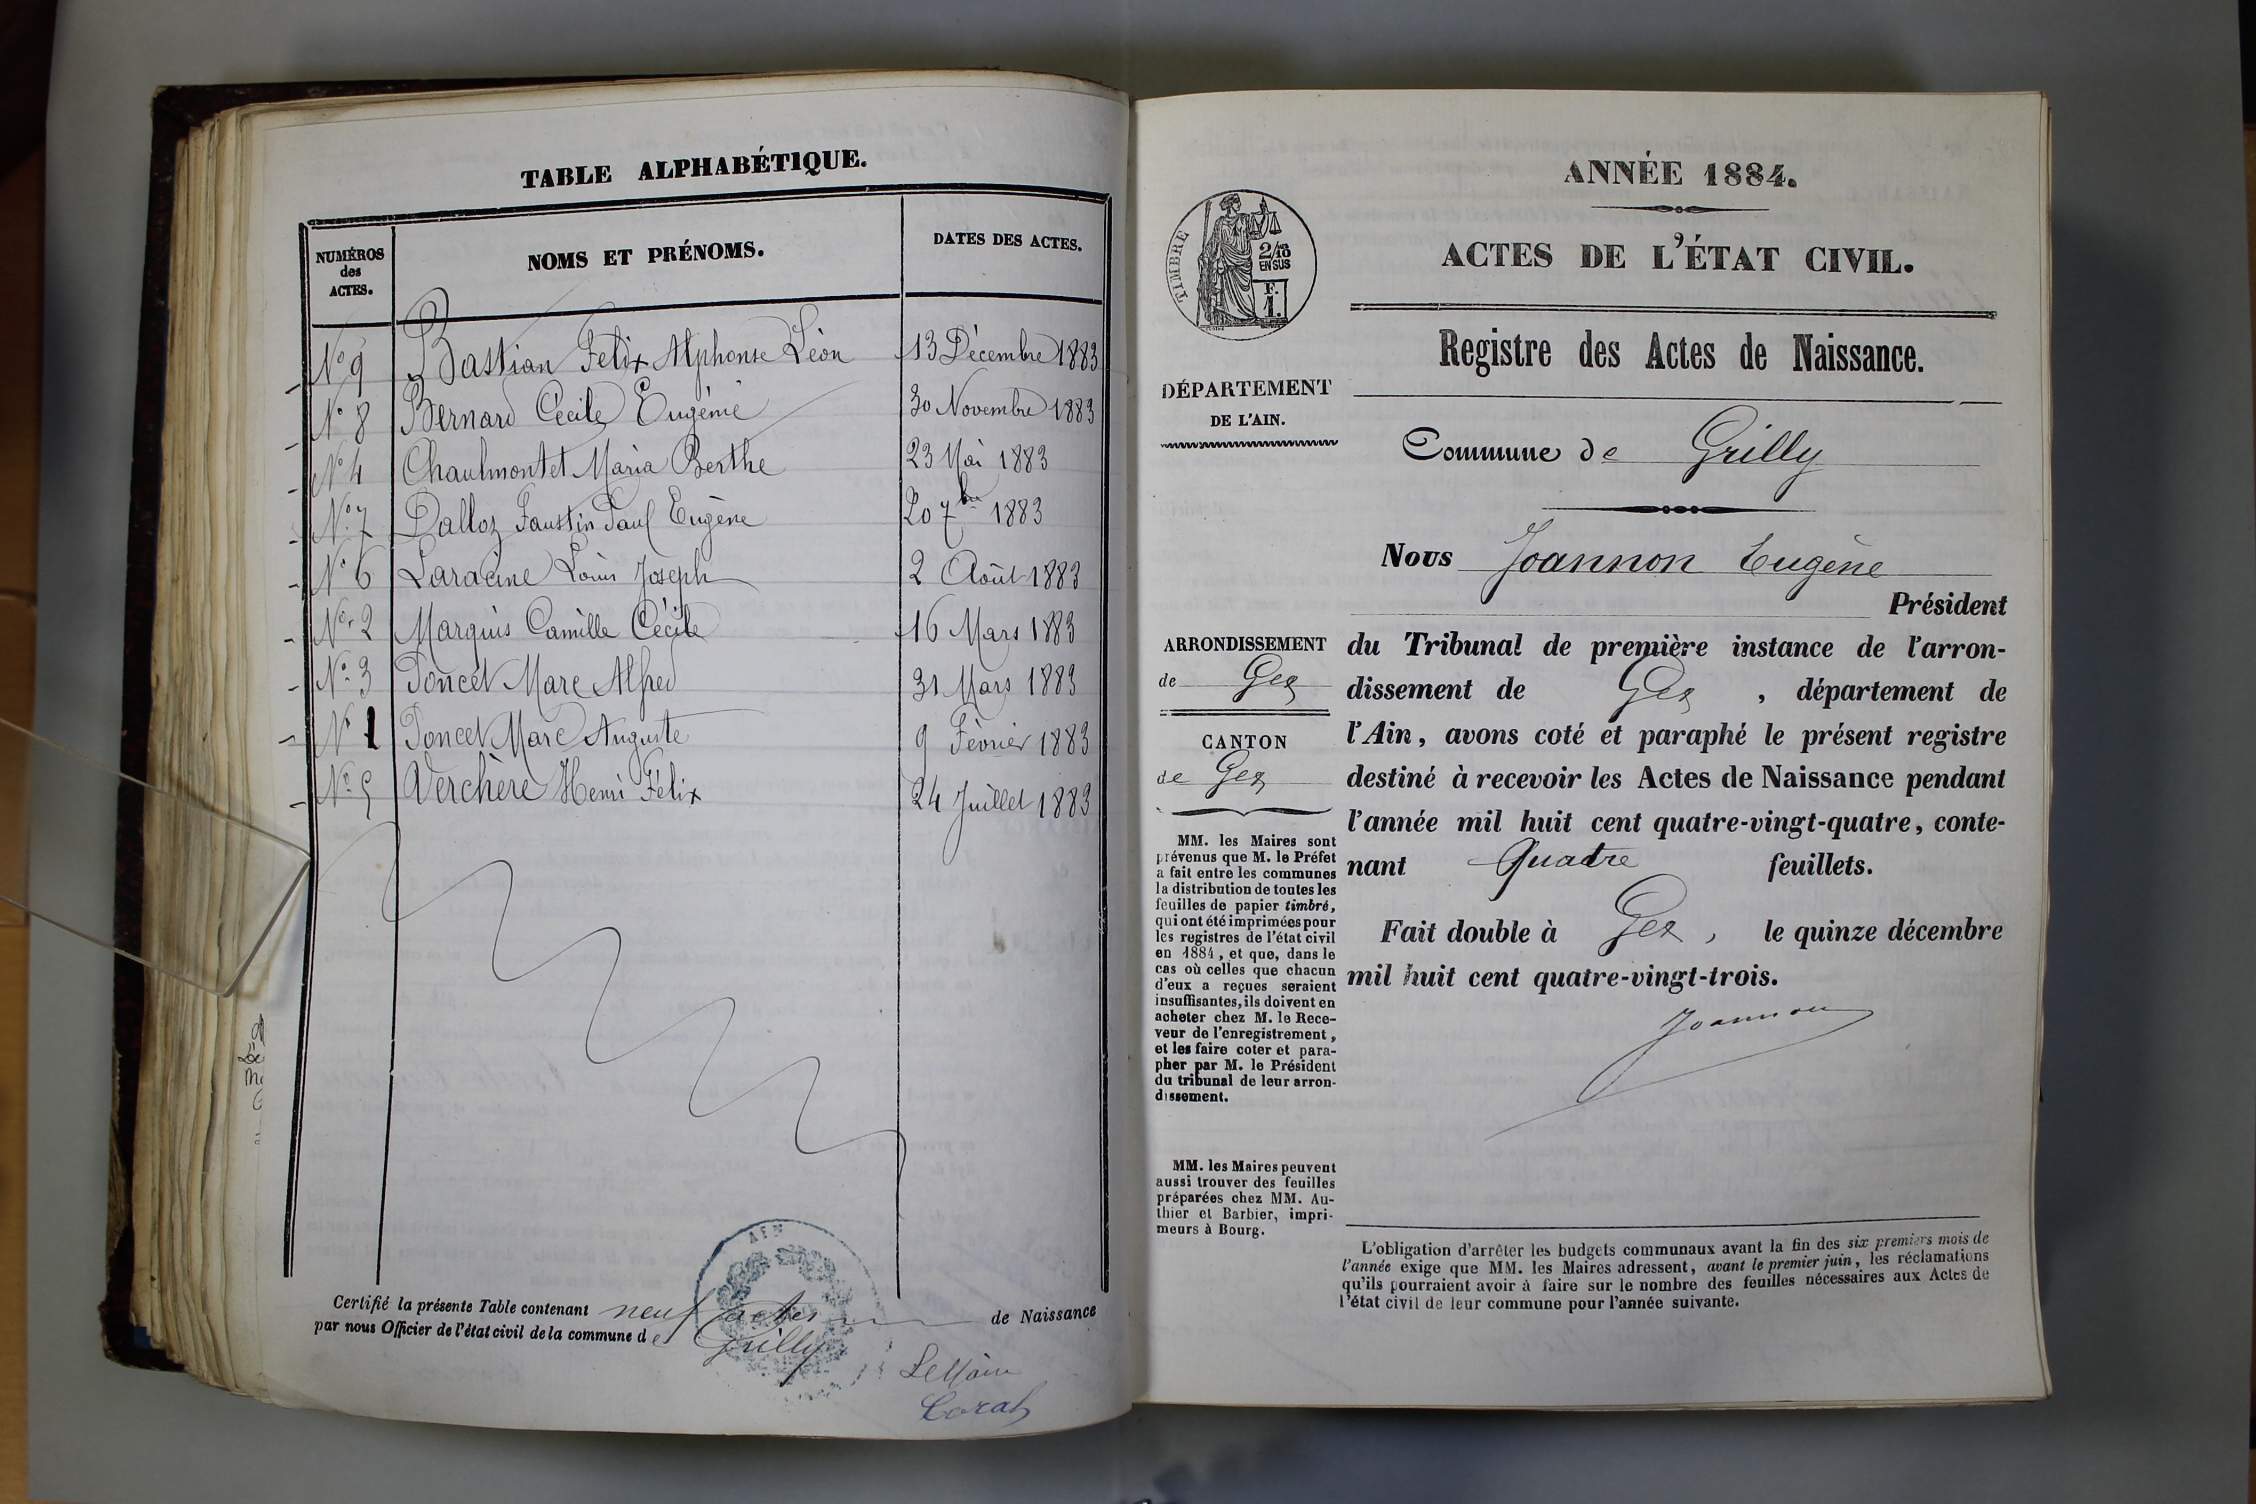 TABLE ALPHABÉTIQUE.
NUMÉROS
des
ACTES.
NOMS ET PRÉNOMS.
DATES DES ACTES.
Nº 9 Bastian Felix Alphonse Léon 13 Décembre 1883
Nº 8 Bernard Cécile Eugénie 30 Novembre 1883
Nº 4 Chaulmontet Maria Berthe 23 Mai 1883
Nº 7 Dalloz Faustin Paul Eugène 20 7bre 1883
Nº 6 Laracine Louis Joseph 2 Août 1883
Nº 2 Marquis Camille Cécile 16 Mars 1883
Nº 3 Poncet Marc Alfred 31 Mars 1883
Nº 1 Poncet Marc Auguste 9 Février 1883
Nº 5 Verchère Henri Félix 24 Juillet 1883
AIN
Certifié la présente Table contenant neuf actes de Naissance
par nous Officier de l'état civil de la commune de Grilly
Le Maire
ANNÉE 1884.
ACTES DE L'ÉTAT CIVIL.
TIMBRE
2/10
EN SUS
F.
1.
Registre des Actes de Naissance.
DÉPARTEMENT
DE L'AIN.
Commune de Grilly
Nous Joannon Eugène
Président
du Tribunal de première instance de l'arron-
dissement de Gex, département de
l'Ain, avons coté et paraphé le présent registre
destiné à recevoir les Actes de Naissance pendant
l'année mil huit cent quatre-vingt-quatre, conte-
nant Quatre feuillets.
Fait double à Gex, le quinze décembre
mil huit cent quatre-vingt-trois.
Joannon
ARRONDISSEMENT
de Gex
CANTON
de Gex
MM. les Maires sont
prévenus que M. le Préfet
a fait entre les communes
la distribution de toutes les
feuilles de papier timbré,
qui ont été imprimées pour
les registres de l'état civil
en 1884, et que, dans le
cas où celles que chacun
d'eux a reçues seraient
insuffisantes, ils doivent en
acheter chez M. le Rece-
veur de l'enregistrement,
et les faire coter et para-
pher par M. le Président
du tribunal de leur arron-
dissement.
MM. les Maires peuvent
aussi trouver des feuilles
préparées chez MM. Au-
thier et Barbier, impri-
meurs à Bourg.
L'obligation d'arrêter les budgets communaux avant la fin des six premiers mois de
l'année exige que MM. les Maires adressent, avant le premier juin, les réclamations
qu'ils pourraient avoir à faire sur le nombre des feuilles nécessaires aux Actes de
l'état civil de leur commune pour l'année suivante.